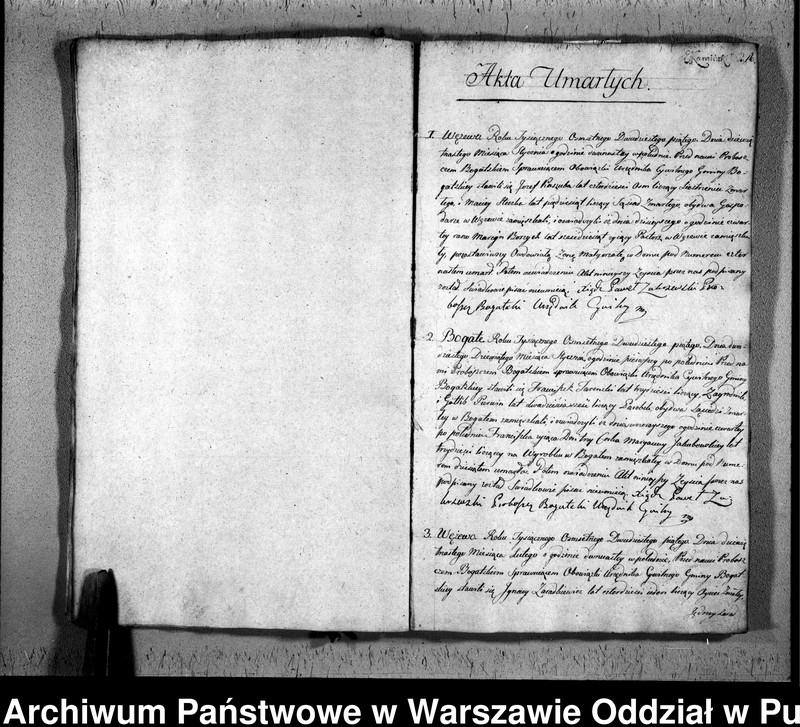 Akta Umarłych.
1. Wężewo Roku Tysiącznego Osmsetnego Dwudziestego piątego. Dnia dziewię
tnastego Miesiąca Stycznia o godzinie dwunastey w południe. Przed nami Probosz
czem Bogatskiem Sprawuiącym Obowiązki Urzędnika Cywilnego Gminy Bo-
gatskiey stawili się Jozef Kaszuba lat czterdzieści Osm liczący Zmar
łego, i Maciey lat pięćdziesiąt liczący Sąsiad Zmarłego, obydwa Gospo-
darze w Wężewie zamięszkali, i oswiadczyli iż dnia dzisieyszego o godzinie czwar
tey rano Marcin lat sześćdziesiąt maiący Pasterz, w Wężewie zamięszka
ły, pozostawiwszy Owdowiałą Zonę Małgorzatę, w Domu pod Numerem czter
nastem umarł. Potem oswiadczeniu Akt ninieyszy Zeyscia przez nas podpisany
został Swiadkowie pisać nieumieią. Xiądz Paweł Pro-
boszcz Bogatski Urzędnik Cywilny
2. Bogate Roku Tysiącznego Osmsetnego Dwudziestego piątego. Dnia dwu-
dziestego Dziewiątego Miesiąca Stycznia, o godzinie pierwszey po południu Przed na
mi Proboszczem Bogatskiem sprawuiącym Obowiązki Urzędnika Cywilnego Gminy
Bogatskiey stawili się Franciszek lat trzydzieści liczący, Zagrodnik
i Gottlib lat dwadzieścia sześć liczący Parobek, obydwa Sąsiedzi Zmar
łey w Bogatem zamięszkali, i oswiadczyli iż dnia wczorayszego o godzinie czwartey
po południu Franciszka Córka Maryanny Jakubowskiey lat
trzydzieści liczącey na Wyrobku w Bogatem zamięszkałey w Domu pod Nume-
rem dziesiątem umarła. Potem oswiadczeniu Akt ninieyszy Zeyscia przez nas
podpisany został Swiadkowie pisać nieumieią. Xiądz Paweł
Proboszcz Bogatski Urzędnik Cywilny
3. Wężewo Roku Tysiącznego Osmsetnego Dwudziestego piątego. Dnia dziewię
tnastego Miesiąca Lutego o godzinie dwunastey w południe, Przed nami Probosz
czem Bogatskiem Sprawuiącym Obowiązki Urzędnika Cywilnego Gminy Bogat
skiey stawili się Ignacy lat czterdzieści ieden liczący Oyciec Zmarłey,
Archiwum Państwowe w Warszawie Oddział w Pu